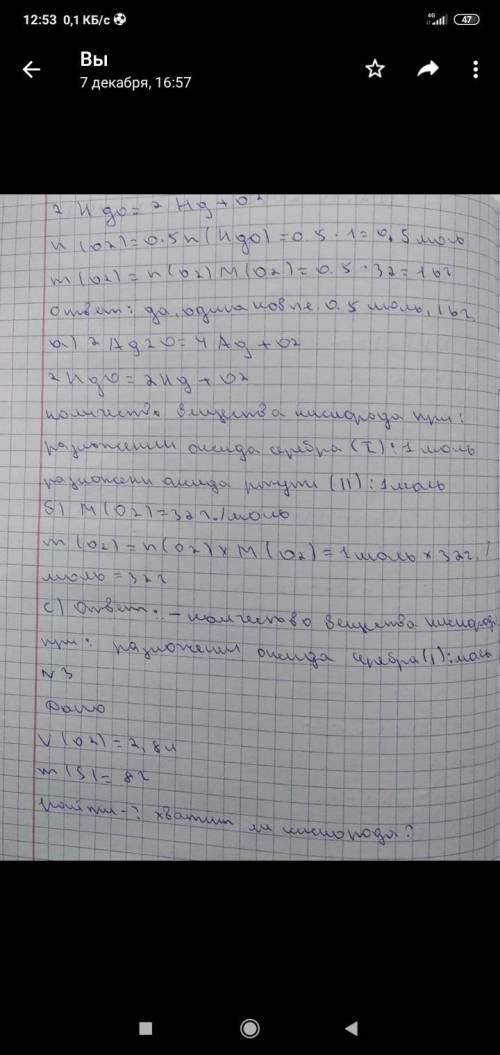 12:53 0,1 КБ/с
4G 47
Вы
7 декабря, 16:57
2 HgO = 2 Hg + O2
n(O2) = 0.5n(HgO) = 0.5 · 1 = 0,5 моль
m(O2) = n(O2) M(O2) = 0.5 · 32 = 16г
ответ: да, 0.5 моль, 16г.
a) 2 Ag2O = 4 Ag + O2
2 HgO = 2Hg + O2
количество вещества кислорода при:
разложении оксида серебра (I): 1 моль
разложени оксида ртути (II): 1 моль
б) M(O2) = 32 г./моль
m(O2) = n(O2) × M(O2) = 1 моль × 32г. /
моль = 32г
c) Ответ: - количество вещества кислород.
при: разложении оксида серебра (I): моль
N3
Дано
V(O2) = 2,8л
m(S) = 8г
найти - ? хватит ли кислорода?